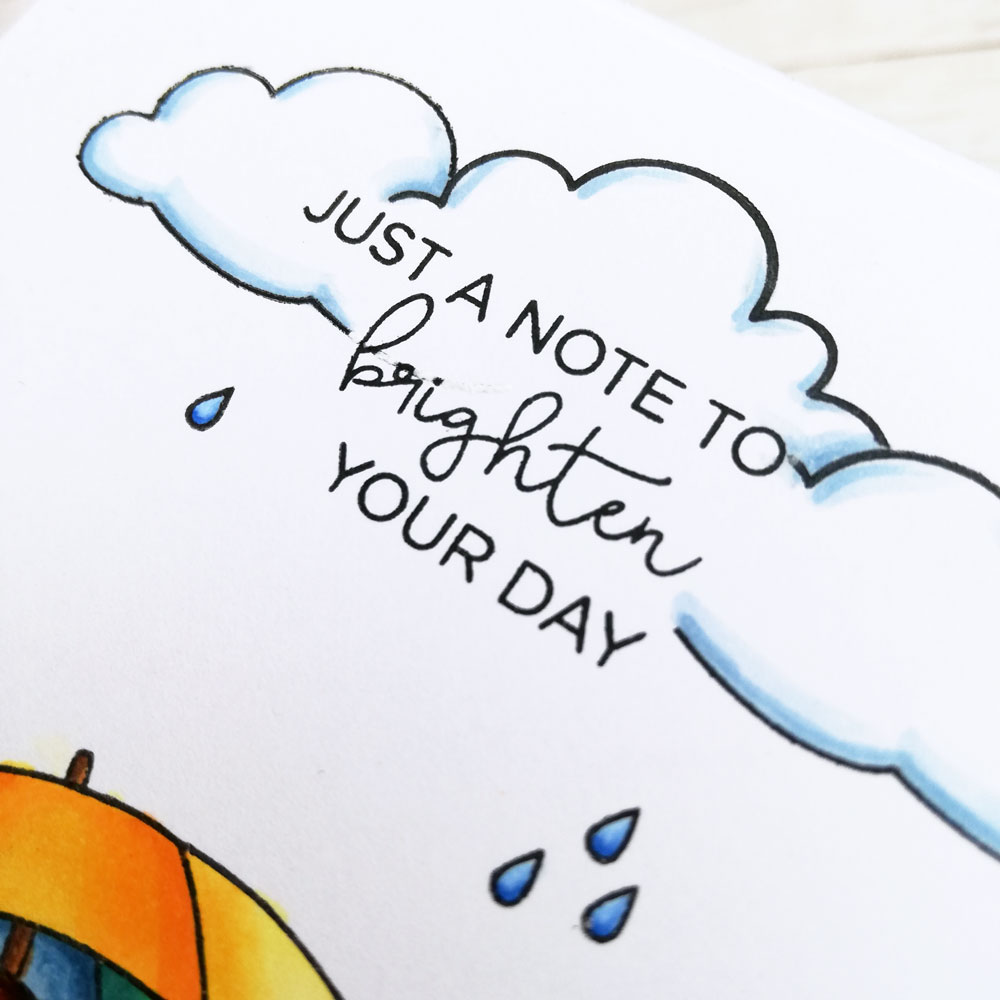 JUST A NOTE TO
brighten
YOUR DAY